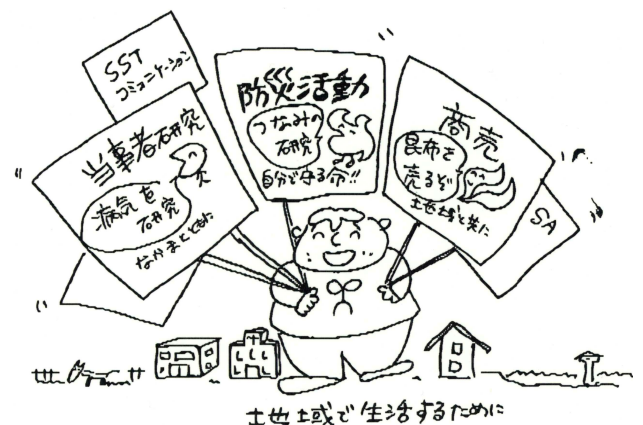 SST
コミュニケーション
当事者研究
病気を
研究
なかまとともに
防災活動
つなみの
研究
自分で守る命!!
商売
昆布を
売るぞ
地域と共に
SA
地域で生活するために